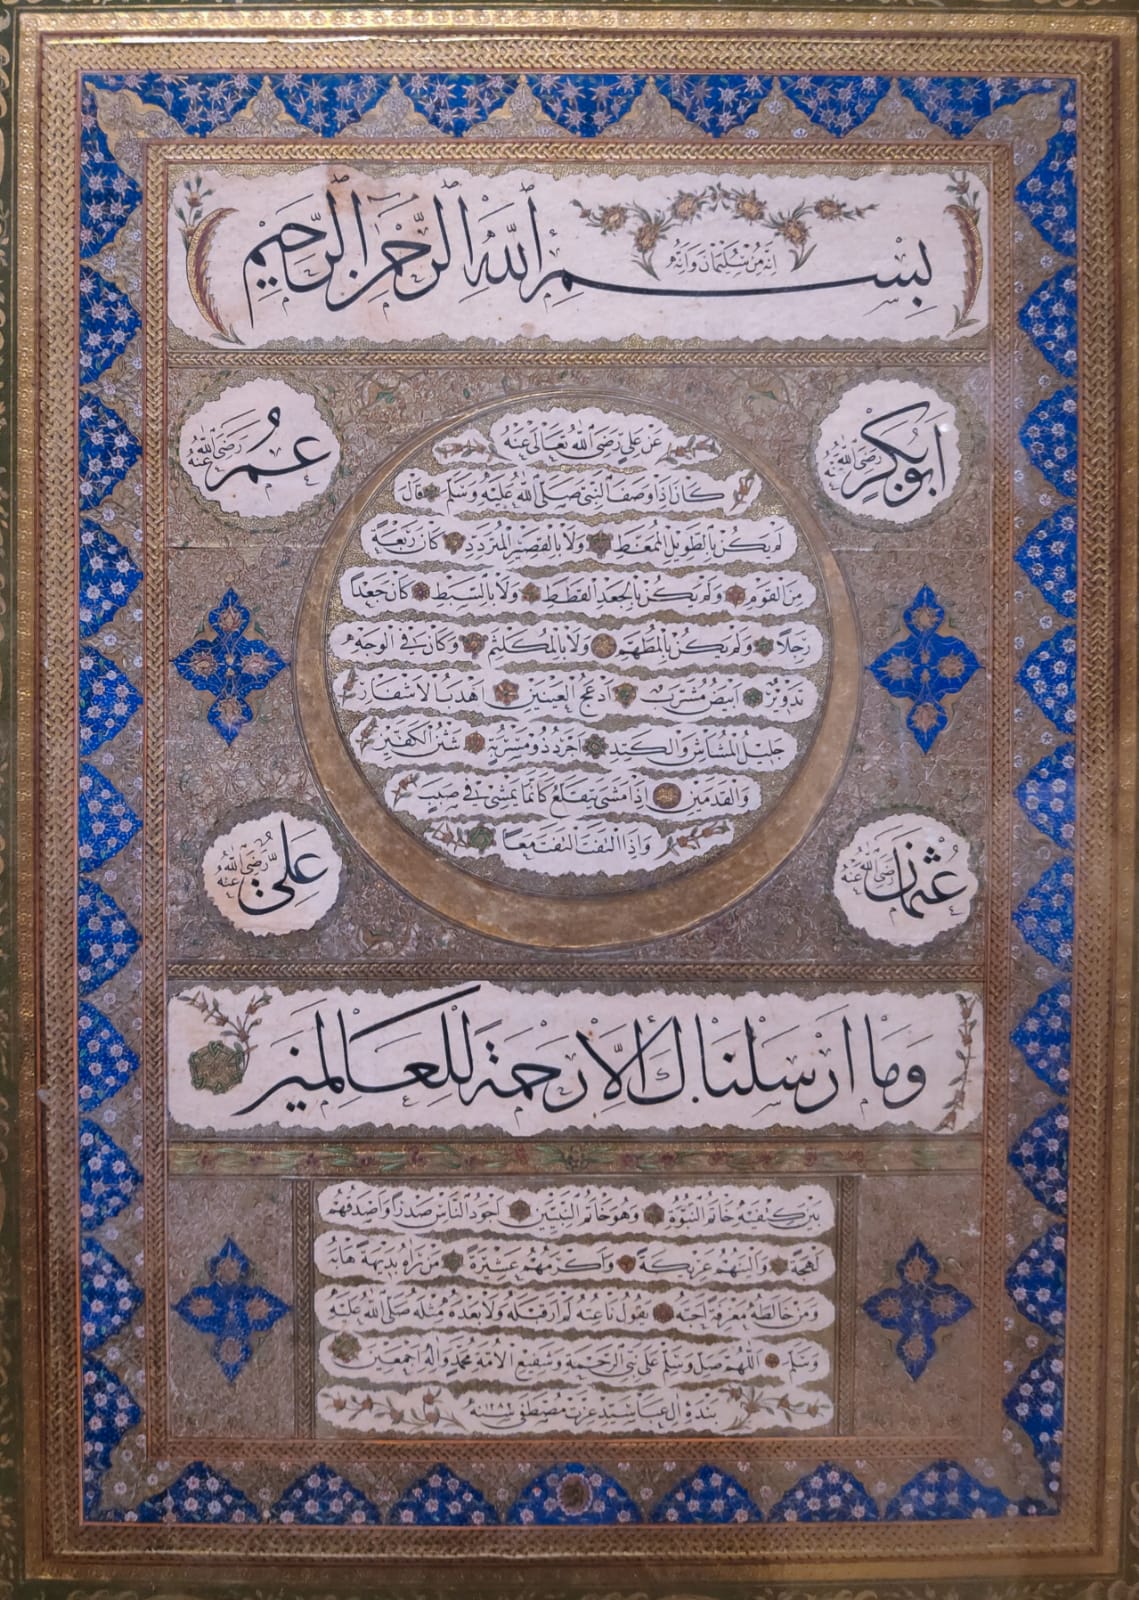 بِسْمِ اللّٰهِ الرَّحْمٰنِ الرَّحِيْمِ
اِنَّهُ مِنْ سُلَيْمَانَ وَاِنَّهُ
اَبُو بَكْرٍ رَضِيَ اللّٰهُ عَنْهُ
عُمَرُ رَضِيَ اللّٰهُ عَنْهُ
عَنْ عَلِىٍّ رَضِىَ اللّٰهُ تَعَالٰى عَنْهُ
كَانَ اِذَا وَصَفَ النَّبِىَّ صَلَّى اللّٰهُ عَلَيْهِ وَسَلَّمَ قَالَ
لَمْ يَكُنْ بِالطَّوِيْلِ الْمُمَّغِطِ وَلَا بِالْقَصِيْرِ الْمُتَرَدِّدِ كَانَ رَبْعَةً
مِنَ الْقَوْمِ وَلَمْ يَكُنْ بِالْجَعْدِ الْقَطَطِ وَلَا بِالسَّبِطِ كَانَ جَعْدًا
رَجِلًا وَلَمْ يَكُنْ بِالْمُطَهَّمِ وَلَا بِالْمُكَلْثَمِ وَكَانَ فِى الْوَجْهِ
تَدْوِيْرٌ اَبْيَضُ مُشْرَبٌ اَدْعَجُ الْعَيْنَيْنِ اَهْدَبُ الْاَشْفَارِ
جَلِيْلُ الْمُشَاشِ وَالْكَتَدِ اَجْرَدُ ذُو مَسْرُبَةٍ شَثْنُ الْكَفَّيْنِ
وَالْقَدَمَيْنِ اِذَا مَشٰى يَتَقَلَّعُ كَاَنَّمَا يَمْشِى فِى صَبَبٍ
وَاِذَا الْتَفَتَ الْتَفَتَ مَعًا
عُثْمَانُ رَضِيَ اللّٰهُ عَنْهُ
عَلِىٌّ رَضِيَ اللّٰهُ عَنْهُ
وَمَا اَرْسَلْنَاكَ اِلَّا رَحْمَةً لِلْعَالَمِيْنَ
بَيْنَ كَتِفَيْهِ خَاتَمُ النُّبُوَّةِ وَهُوَ خَاتَمُ النَّبِيِّيْنَ اَجْوَدُ النَّاسِ صَدْرًا وَاَصْدَقُهُمْ
لَهْجَةً وَاَلْيَنُهُمْ عَرِيْكَةً وَاَكْرَمُهُمْ عَشِيْرَةً مَنْ رَاٰهُ بَدِيْهَةً هَابَهُ
وَمَنْ خَالَطَهُ مَعْرِفَةً اَحَبَّهُ يَقُولُ نَاعِتُهُ لَمْ اَرَ قَبْلَهُ وَلَا بَعْدَهُ مِثْلَهُ صَلَّى اللّٰهُ عَلَيْهِ
وَسَلَّمَ اَللّٰهُمَّ صَلِّ وَسَلِّمْ عَلٰى نَبِىِّ الرَّحْمَةِ وَشَفِيْعِ الْاُمَّةِ مُحَمَّدٍ وَاٰلِهِ اَجْمَعِيْنَ
بندۀ آل عبا سيد عزت مصطفى سنه